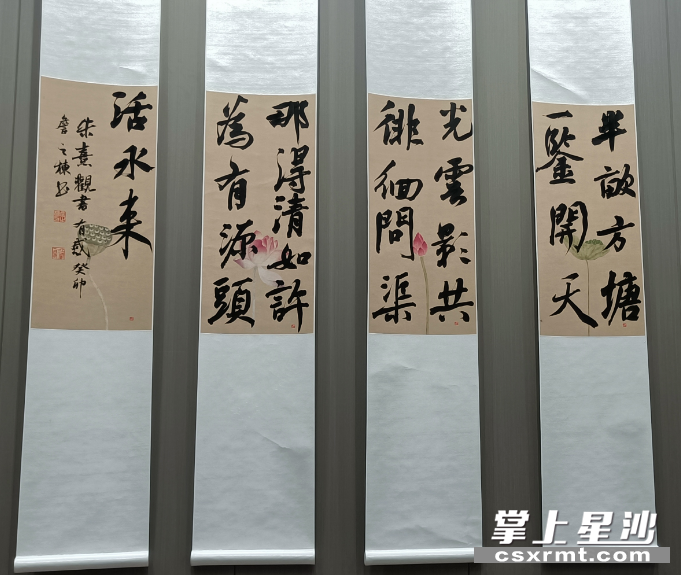 半畝方塘
一鑒開天
光雲影共
徘徊問渠
那得清如許
為有源頭
活水来
朱熹觀書有感癸卯
掌上星沙
csxrmt.com